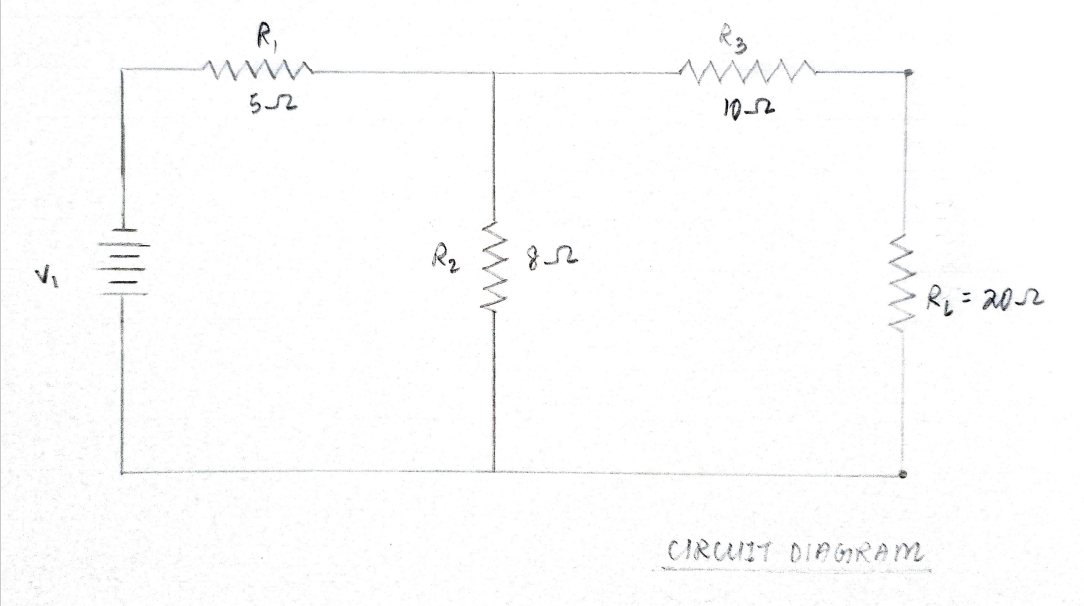 R₁
5Ω
R₃
10Ω
V₁
R₂
8Ω
R_L = 20Ω
CIRCUIT DIAGRAM